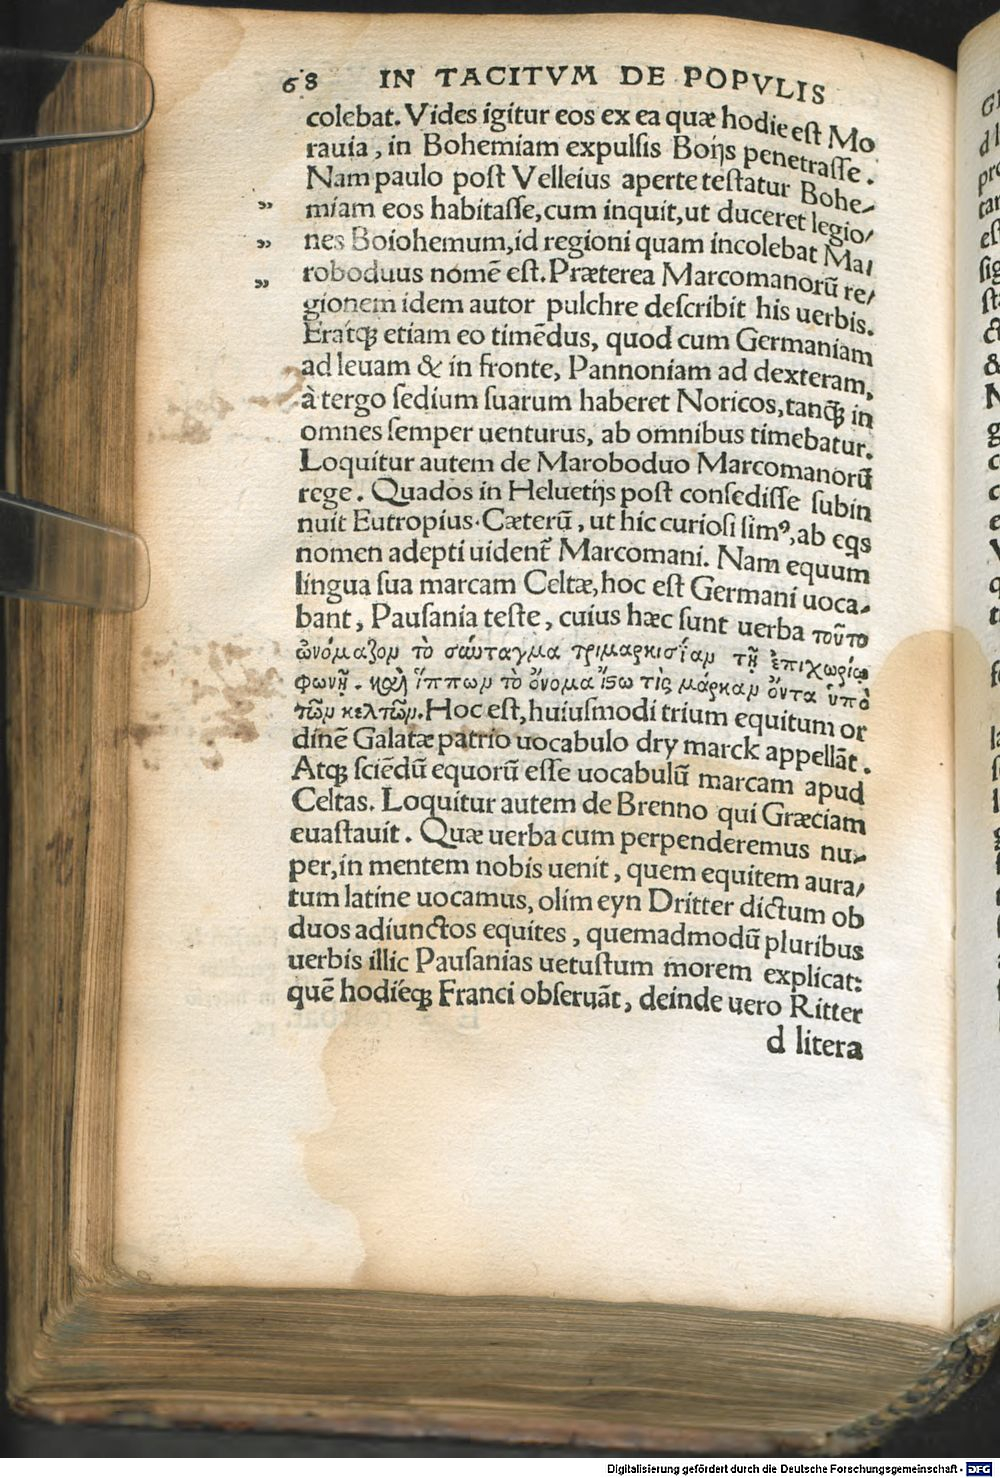 68 IN TACITVM DE POPVLIS
colebat. Vides igitur eos ex ea quæ hodie eſt Mo
rauia, in Bohemiam expulſis Boijs penetraſſe.
Nam paulo poſt Velleius aperte teſtatur Bohe-
miam eos habitaſſe, cum inquit, ut duceret legio/
nes Boiohemum, id regioni quam incolebat Ma/
roboduus nomē eſt. Præterea Marcomanorū re/
gionem idem autor pulchre deſcribit his uerbis.
Eratq; etiam eo timēdus, quod cum Germaniam
ad leuam & in fronte, Pannoniam ad dexteram,
à tergo ſedium ſuarum haberet Noricos, tanq̃ in
omnes ſemper uenturus, ab omnibus timebatur.
Loquitur autem de Maroboduo Marcomanorū
rege. Quados in Heluetijs poſt conſediſſe ſubin
nuit Eutropius. Cæterū, ut hic curioſi ſimꝰ, ab eqs
nomen adepti uident᷑ Marcomani. Nam equum
lingua ſua marcam Celtæ, hoc eſt Germani uoca-
bant, Pauſania teſte, cuius hæc ſunt uerba τοῦτο
ὠνόμαζον τὸ σύνταγμα τριμαρκισίαν τῇ ἐπιχωρίῳ
φωνῇ. καὶ ἵππων τὸ ὄνομα ἴστω τὶς μάρκαν ὄντα ὑπὸ
τῶν κελτῶν. Hoc eſt, huiuſmodi trium equitum or
dinē Galatæ patrio uocabulo dry marck appellāt.
Atq; ſciēdū equorū eſſe uocabulū marcam apud
Celtas. Loquitur autem de Brenno qui Græciam
euaſtauit. Quæ uerba cum perpenderemus nu-
per, in mentem nobis uenit, quem equitem aura/
tum latine uocamus, olim eyn Dritter dictum ob
duos adiunctos equites, quemadmodū pluribus
uerbis illic Pauſanias uetuſtum morem explicat:
quē hodiéq; Franci obſeruāt, deinde uero Ritter
d litera
Digitalisierung gefördert durch die Deutsche Forschungsgemeinschaft - DFG